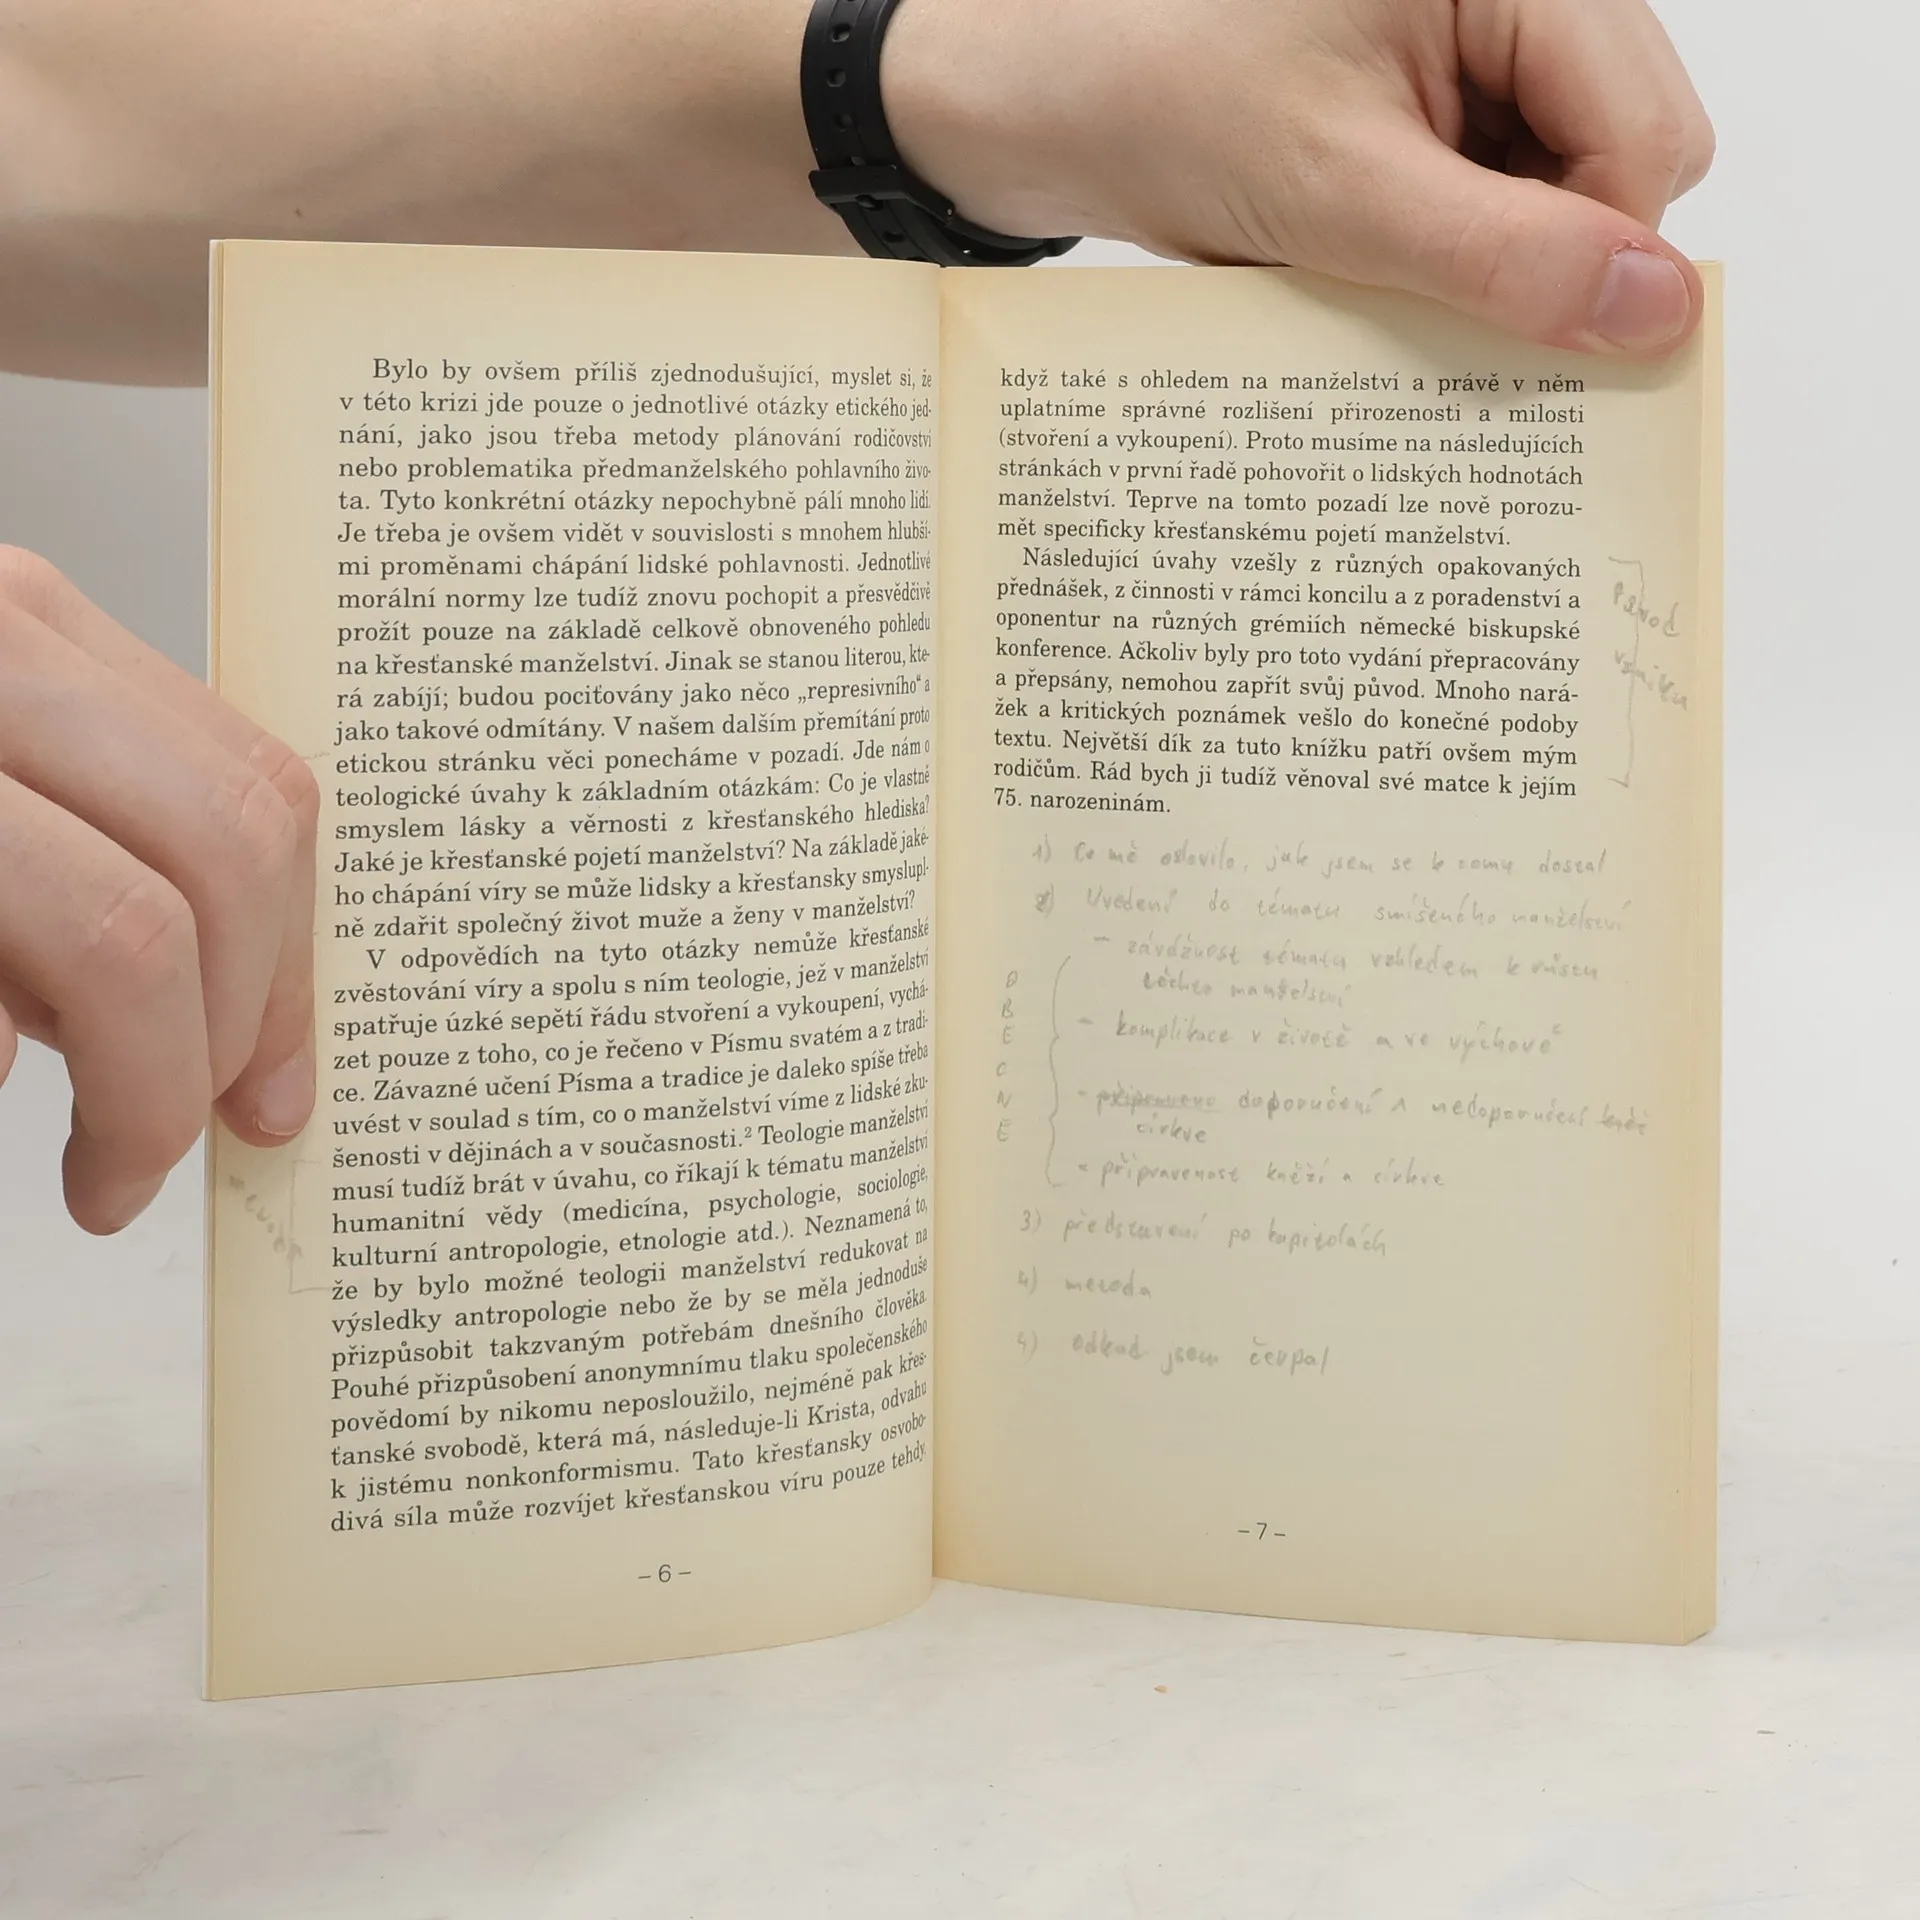 Bylo by ovšem příliš zjednodušující, myslet si, že
v této krizi jde pouze o jednotlivé otázky etického jed-
nání, jako jsou třeba metody plánování rodičovství
nebo problematika předmanželského pohlavního živo-
ta. Tyto konkrétní otázky nepochybně pálí mnoho lidí.
Je třeba je ovšem vidět v souvislosti s mnohem hlubší-
mi proměnami chápání lidské pohlavnosti. Jednotlivé
morální normy lze tudíž znovu pochopit a přesvědčivě
prožít pouze na základě celkově obnoveného pohledu
na křesťanské manželství. Jinak se stanou literou, kte-
rá zabíjí; budou pociťovány jako něco „represivního“ a
jako takové odmítány. V našem dalším přemítání proto
etickou stránku věci ponecháme v pozadí. Jde nám o
teologické úvahy k základním otázkám: Co je vlastně
smyslem lásky a věrnosti z křesťanského hlediska?
Jaké je křesťanské pojetí manželství? Na základě jaké-
ho chápání víry se může lidsky a křesťansky smyslupl-
ně zdařit společný život muže a ženy v manželství?
V odpovědích na tyto otázky nemůže křesťanské
zvěstování víry a spolu s ním teologie, jež v manželství
spatřuje úzké sepětí řádu stvoření a vykoupení, vychá-
zet pouze z toho, co je řečeno v Písmu svatém a z tradi-
ce. Závazné učení Písma a tradice je daleko spíše třeba
uvést v soulad s tím, co o manželství víme z lidské zku-
šenosti v dějinách a v současnosti.² Teologie manželství
musí tudíž brát v úvahu, co říkají k tématu manželství
humanitní vědy (medicína, psychologie, sociologie,
kulturní antropologie, etnologie atd.). Neznamená to,
že by bylo možné teologii manželství redukovat na
výsledky antropologie nebo že by se měla jednoduše
přizpůsobit takzvaným potřebám dnešního člověka.
Pouhé přizpůsobení anonymnímu tlaku společenského
povědomí by nikomu neposloužilo, nejméně pak křes-
ťanské svobodě, která má, následuje-li Krista, odvahu
k jistému nonkonformismu. Tato křesťansky osvobo-
divá síla může rozvíjet křesťanskou víru pouze tehdy,
– 6 –
když také s ohledem na manželství a právě v něm
uplatníme správné rozlišení přirozenosti a milosti
(stvoření a vykoupení). Proto musíme na následujících
stránkách v první řadě pohovořit o lidských hodnotách
manželství. Teprve na tomto pozadí lze nově porozu-
mět specificky křesťanskému pojetí manželství.
Následující úvahy vzešly z různých opakovaných
přednášek, z činnosti v rámci koncilu a z poradenství a
oponentur na různých grémiích německé biskupské
konference. Ačkoliv byly pro toto vydání přepracovány
a přepsány, nemohou zapřít svůj původ. Mnoho nará-
žek a kritických poznámek vešlo do konečné podoby
textu. Největší dík za tuto knížku patří ovšem mým
rodičům. Rád bych ji tudíž věnoval své matce k jejím
75. narozeninám.
vzniku
1) Co mě oslovilo, jak jsem se k tomu dostal
2) Uvedení do tématu smíšeného manželství
– závažnost tématu vzhledem k růstu
těchto manželství
– komplikace v životě a ve výchově
OBECNĚ
– doporučení a nedoporučení
církve
– připravenost kněží a církve
3) představení po kapitolách
4) metoda
odkud jsem čerpal
– 7 –